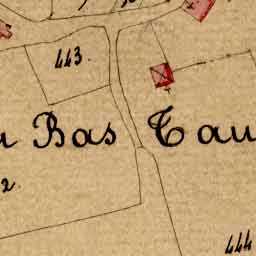 443.
Bas Tau
2.
444